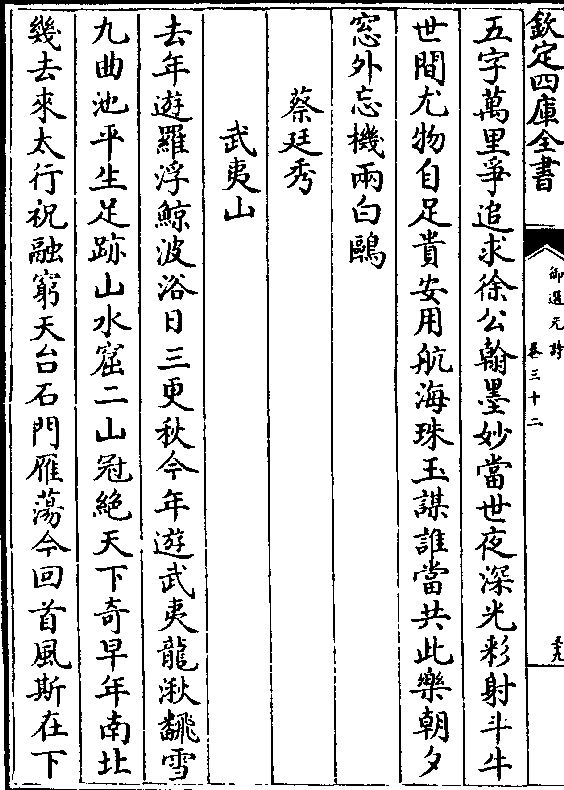 欽定四庫全書
御選元詩
卷三十二
五字萬里爭追求徐公翰墨妙當世夜深光彩射斗牛
世間尤物自足貴安用航海珠玉謀誰當共此樂朝夕
窓外忘機兩白鷗
蔡廷秀
武夷山
去年遊羅浮鯨波浴日三更秋今年遊武夷龍湫飜雪
九曲池平生足跡山水窟二山冠絶天下奇早年南北
幾去來太行祝融窮天台石門雁蕩今回首風斯在下